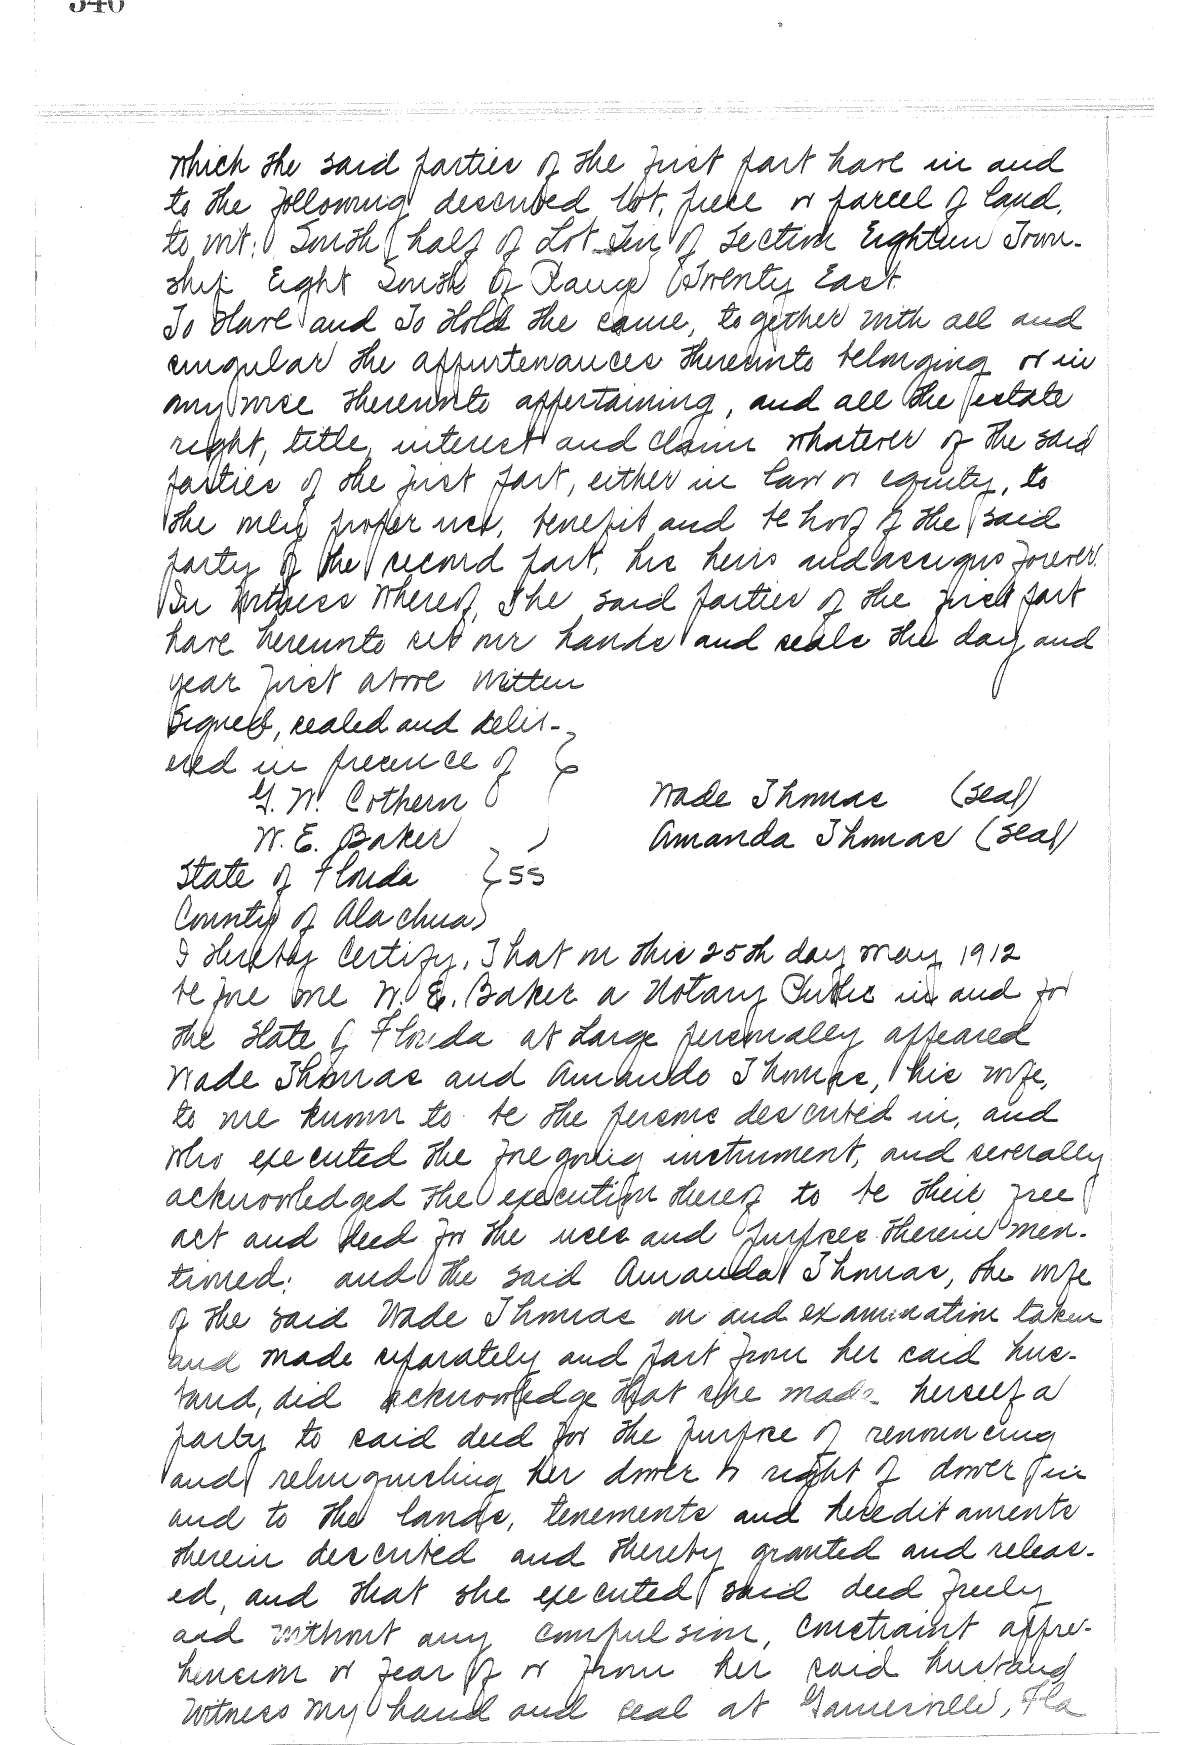 which the said parties of the first part have in and
to the following described lot, piece or parcel of land,
to wit: South half of Lot Ten of Section Eighteen Town-
ship Eight South of Range Twenty East
To Have and To Hold the same, together with all and
singular the appurtenances thereunto belonging or in
any wise thereunto appertaining, and all the estate
right, title, interest and claim whatever of the said
parties of the first part, either in law or equity, to
the only proper use, benefit and behoof of the said
party of the second part, his heirs and assigns forever.
In Witness Whereof, The said parties of the first part
have hereunto set our hands and seals the day and
year first above written
Signed, sealed and deliv-
ered in presence of
G. W. Cothern Wade Thomas (seal)
W. E. Baker Amanda Thomas (seal)
State of Florida } SS
County of Alachua
I Hereby Certify, That on this 25th day May 1912
before me W. E. Baker a Notary Public in and for
the State of Florida at Large personally appeared
Wade Thomas and Amanda Thomas, his wife,
to me known to be the persons described in, and
who executed the foregoing instrument, and severally
acknowledged the execution thereof to be their free
act and deed for the uses and purposes therein men-
tioned; and the said Amanda Thomas, the wife
of the said Wade Thomas on and examination taken
and made separately and part from her said hus-
band, did acknowledge that she made herself a
party to said deed for the purpose of renouncing
and relinquishing her dower or right of dower in
and to the lands, tenements and hereditaments
therein described and thereby granted and releas-
ed, and that she executed said deed freely
and without any compulsion, constraint appre-
hension or fear of or from her said husband
Witness my hand and seal at Gainesville, Fla